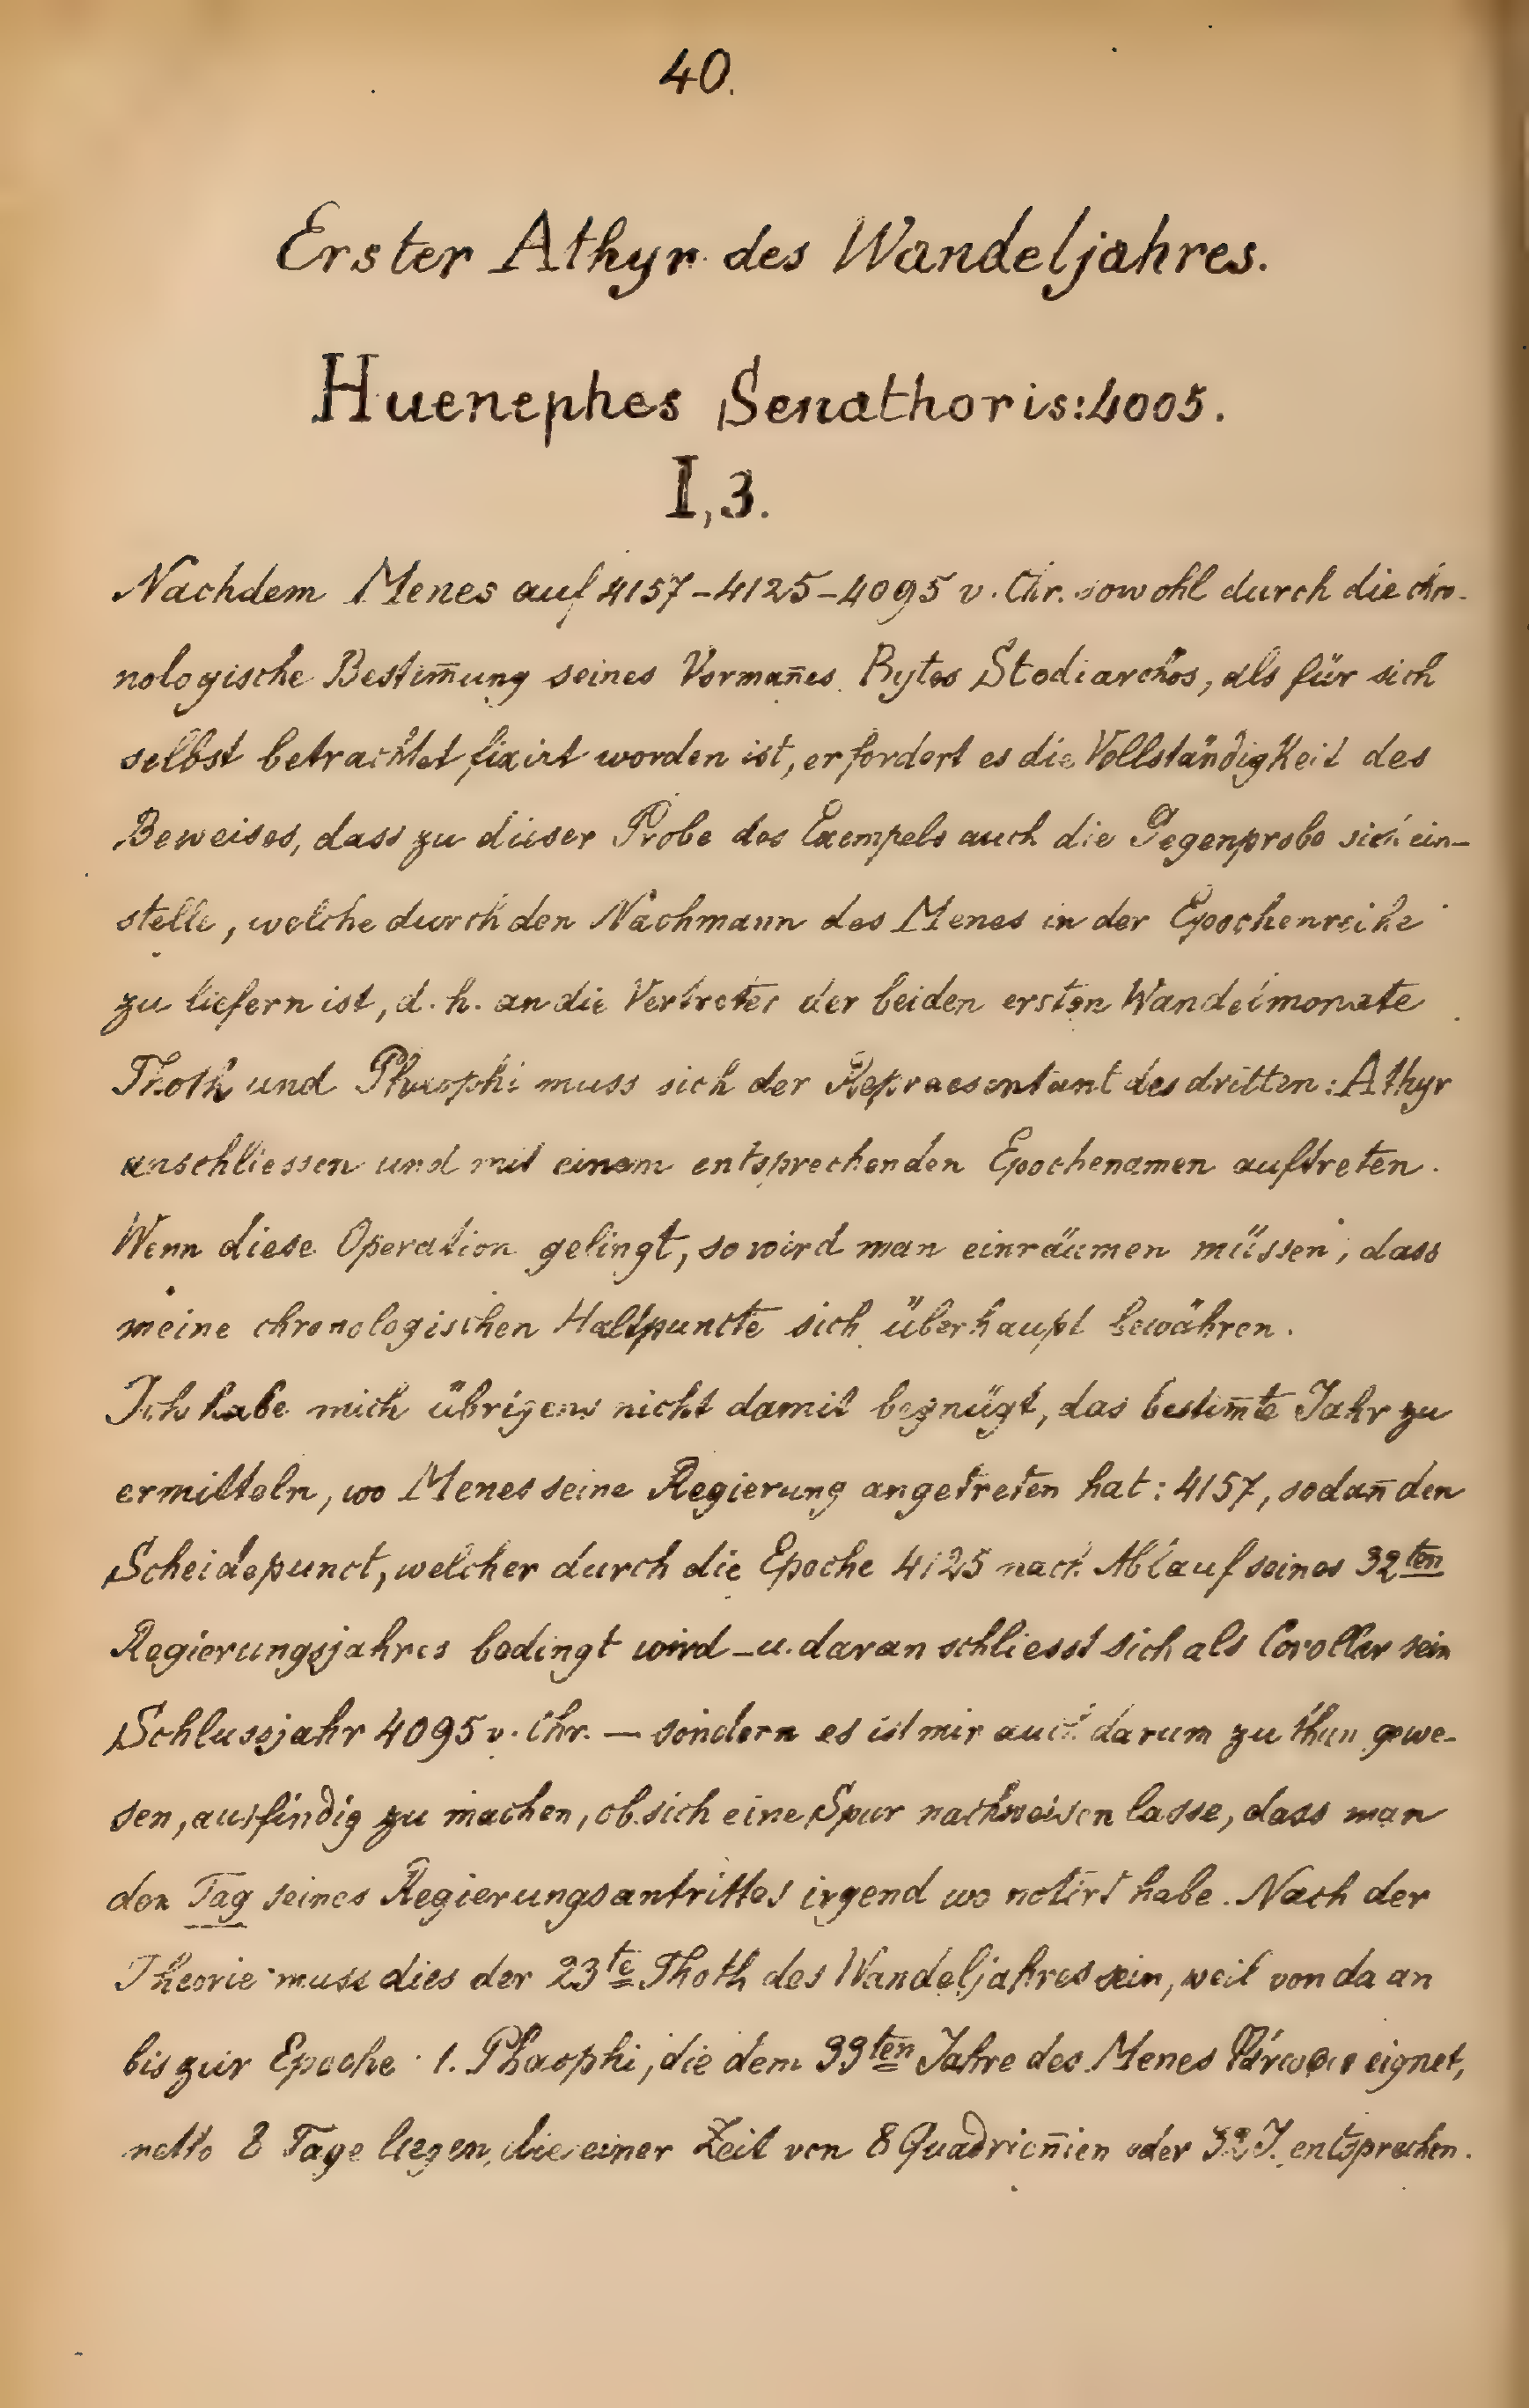 40.
Erster Athyr des Wandeljahres.
Huenephes Senathoris: 4005.
I, 3.
Nachdem Menes auf 4157–4125–4095 v. Chr. sowohl durch die chro-
nologische Bestim̄ung seines Vorman̄es Bytes Stodiarchos, als für sich
selbst betrachtet fixirt worden ist, erfordert es die Vollständigkeit des
Beweises, dass zu dieser Probe des Exempels auch die Gegenprobe sich ein-
stelle, welche durch den Nachmann des Menes in der Epochenreihe
zu liefern ist, d. h. an die Vertreter der beiden ersten Wandelmonate
Thoth und Phaophi muss sich der Repraesentant des dritten: Athyr
anschliessen und mit einem entsprechenden Epochenamen auftreten.
Wenn diese Operation gelingt, so wird man einräumen müssen, dass
meine chronologischen Haltpuncte sich überhaupt bewähren.
Ich habe mich übrigens nicht damit begnügt, das bestim̄te Jahr zu
ermitteln, wo Menes seine Regierung angetreten hat: 4157, sodan̄ den
Scheidepunct, welcher durch die Epoche 4125 nach Ablauf seines 32ten
Regierungsjahres bedingt wird – u. daran schliesst sich als Corollar sein
Schlussjahr 4095 v. Chr. — sondern es ist mir auch darum zu thun gewe-
sen, ausfindig zu machen, ob sich eine Spur nachweisen lasse, dass man
den Tag seines Regierungsantrittes irgend wo notirt habe. Nach der
Theorie muss dies der 23te Thoth des Wandeljahres sein, weil von da an
bis zur Epoche 1. Phaophi, die dem 33ten Jahre des Menes eignet,
netto 8 Tage liegen, die einer Zeit von 8 Quadrien̄ien oder 32 J. entsprechen.